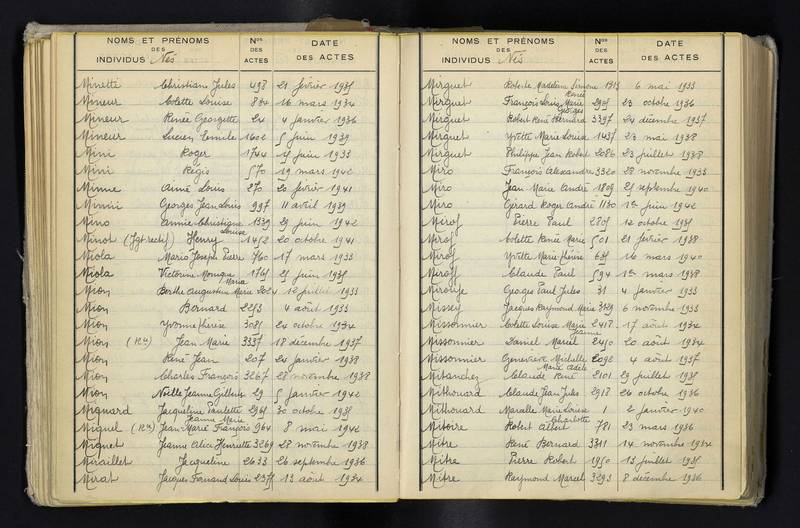 NOMS ET PRÉNOMS DES INDIVIDUS Nés
Nos DES ACTES
DATE DES ACTES
Minette Christiane Jules 498 21 février 1935
Mineur Colette Louise 884 16 mars 1934
Mineur Renée Georgette 24 4 janvier 1936
Mineur Lucien Emile 1602 5 juin 1939
Mini Roger 1744 15 juin 1933
Mini Régis 570 19 mars 1942
Minne Aimé Louis 270 20 février 1941
Minini Georges Jean Louis 997 11 avril 1939
Mino Annie Christiane Louise 1339 29 juin 1942
Minot (Jgt rectif) Henry 1452 20 octobre 1941
Miola Mario Joseph Pierre 760 17 mars 1933
Miola Victorine Monique Maria 1765 25 juin 1935
Mion Berthe Augustine Marie 2024 12 juillet 1933
Mion Bernard 2253 4 août 1933
Mion Yvonne 3085 24 octobre 1934
Mion (R4) Jean Marie 3337 18 décembre 1937
Mion René Jean 207 24 janvier 1938
Mion Charles François 3267 28 novembre 1938
Mion Noëlle Jeanne Gilberte 29 5 janvier 1942
Mignard Jacqueline Paulette Jeanne Marie 2965 30 octobre 1935
Miquel (R4) Jean-Marie François 964 8 mai 1942
Miquet Jeanne Alice Henriette 3269 28 novembre 1938
Miraillet Jacqueline 2633 26 septembre 1936
Mirat Jacques Fernand Louis 2375 13 août 1934
NOMS ET PRÉNOMS DES INDIVIDUS Nés
Nos DES ACTES
DATE DES ACTES
Mirguet Roberte Madeleine Simone Renée 1313 6 mai 1933
Mirguet François Louis Marie Georges 2905 23 octobre 1936
Mirguet Robert René Bernard 3397 24 décembre 1937
Mirguet Yvette Marie Louise 1437 23 mai 1938
Mirguet Philippe Jean Robert 2086 23 juillet 1938
Miro François Alexandre 3320 28 novembre 1933
Miro Jean Marie André 1809 25 septembre 1940
Miro Gérard Roger André 1180 1er juin 1942
Mirof Pierre Paul 2805 12 octobre 1935
Mirof Colette Renée Marie 501 21 février 1938
Mirof Yvette Marie 635 16 mars 1940
Miroff Claude Paul 594 1er mars 1938
Georges Paul Jules 31 4 janvier 1933
Missey Jacques Raymond Marie 3129 6 novembre 1933
Missonnier Colette Louise Marie Jeanne 2418 17 août 1934
Missonnier Daniel Marcel 2450 20 août 1934
Missonnier Geneviève Michelle Marie Adèle 2098 4 août 1937
Mitanchez Claude René 2101 29 juillet 1935
Mithouard Claude Jean Jules 2918 24 octobre 1936
Mithouard Marcelle Marie Louise Charlotte 1 2 janvier 1940
Mitoire Robert Albert 781 23 mars 1936
Mitre René Bernard 3311 14 novembre 1934
Mitre Pierre Robert 1950 13 juillet 1935
Mitre Raymond Marcel 3293 8 décembre 1936